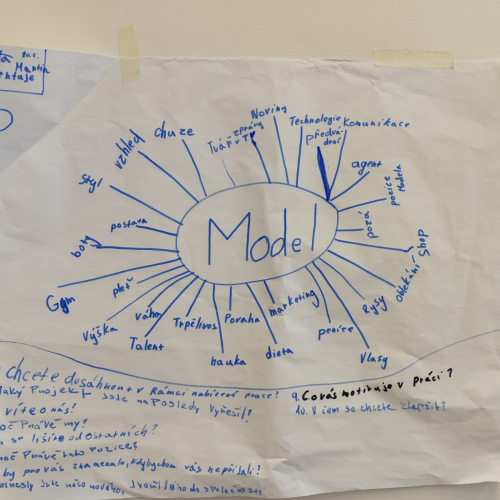 Martin
Model
Noviny
zprávy
Tvář v TV
Technologie
Komunikace
předvá-
dění
agent
pozice
Modela
póza
Shop
Oblékání
Rysy
Vlasy
peníze
marketing
dieta
Povaha
nauka
Trpělivos
Talent
váha
Výška
pleť
Gym
boty
postava
Styl
vzhled
chůze
chcete dosáhnout v Rámci nabízené práce?
Jaký Projekt jste naposledy vyřešil?
víte o nás?
Právě my?
se lišíte od ostatních?
Právě tato pozice?
by pro vás znamenalo, kdybychom vás nepřijali?
jste něco nového,
9. Co vás motivuje v práci?
10. V čem se chcete zlepšit?